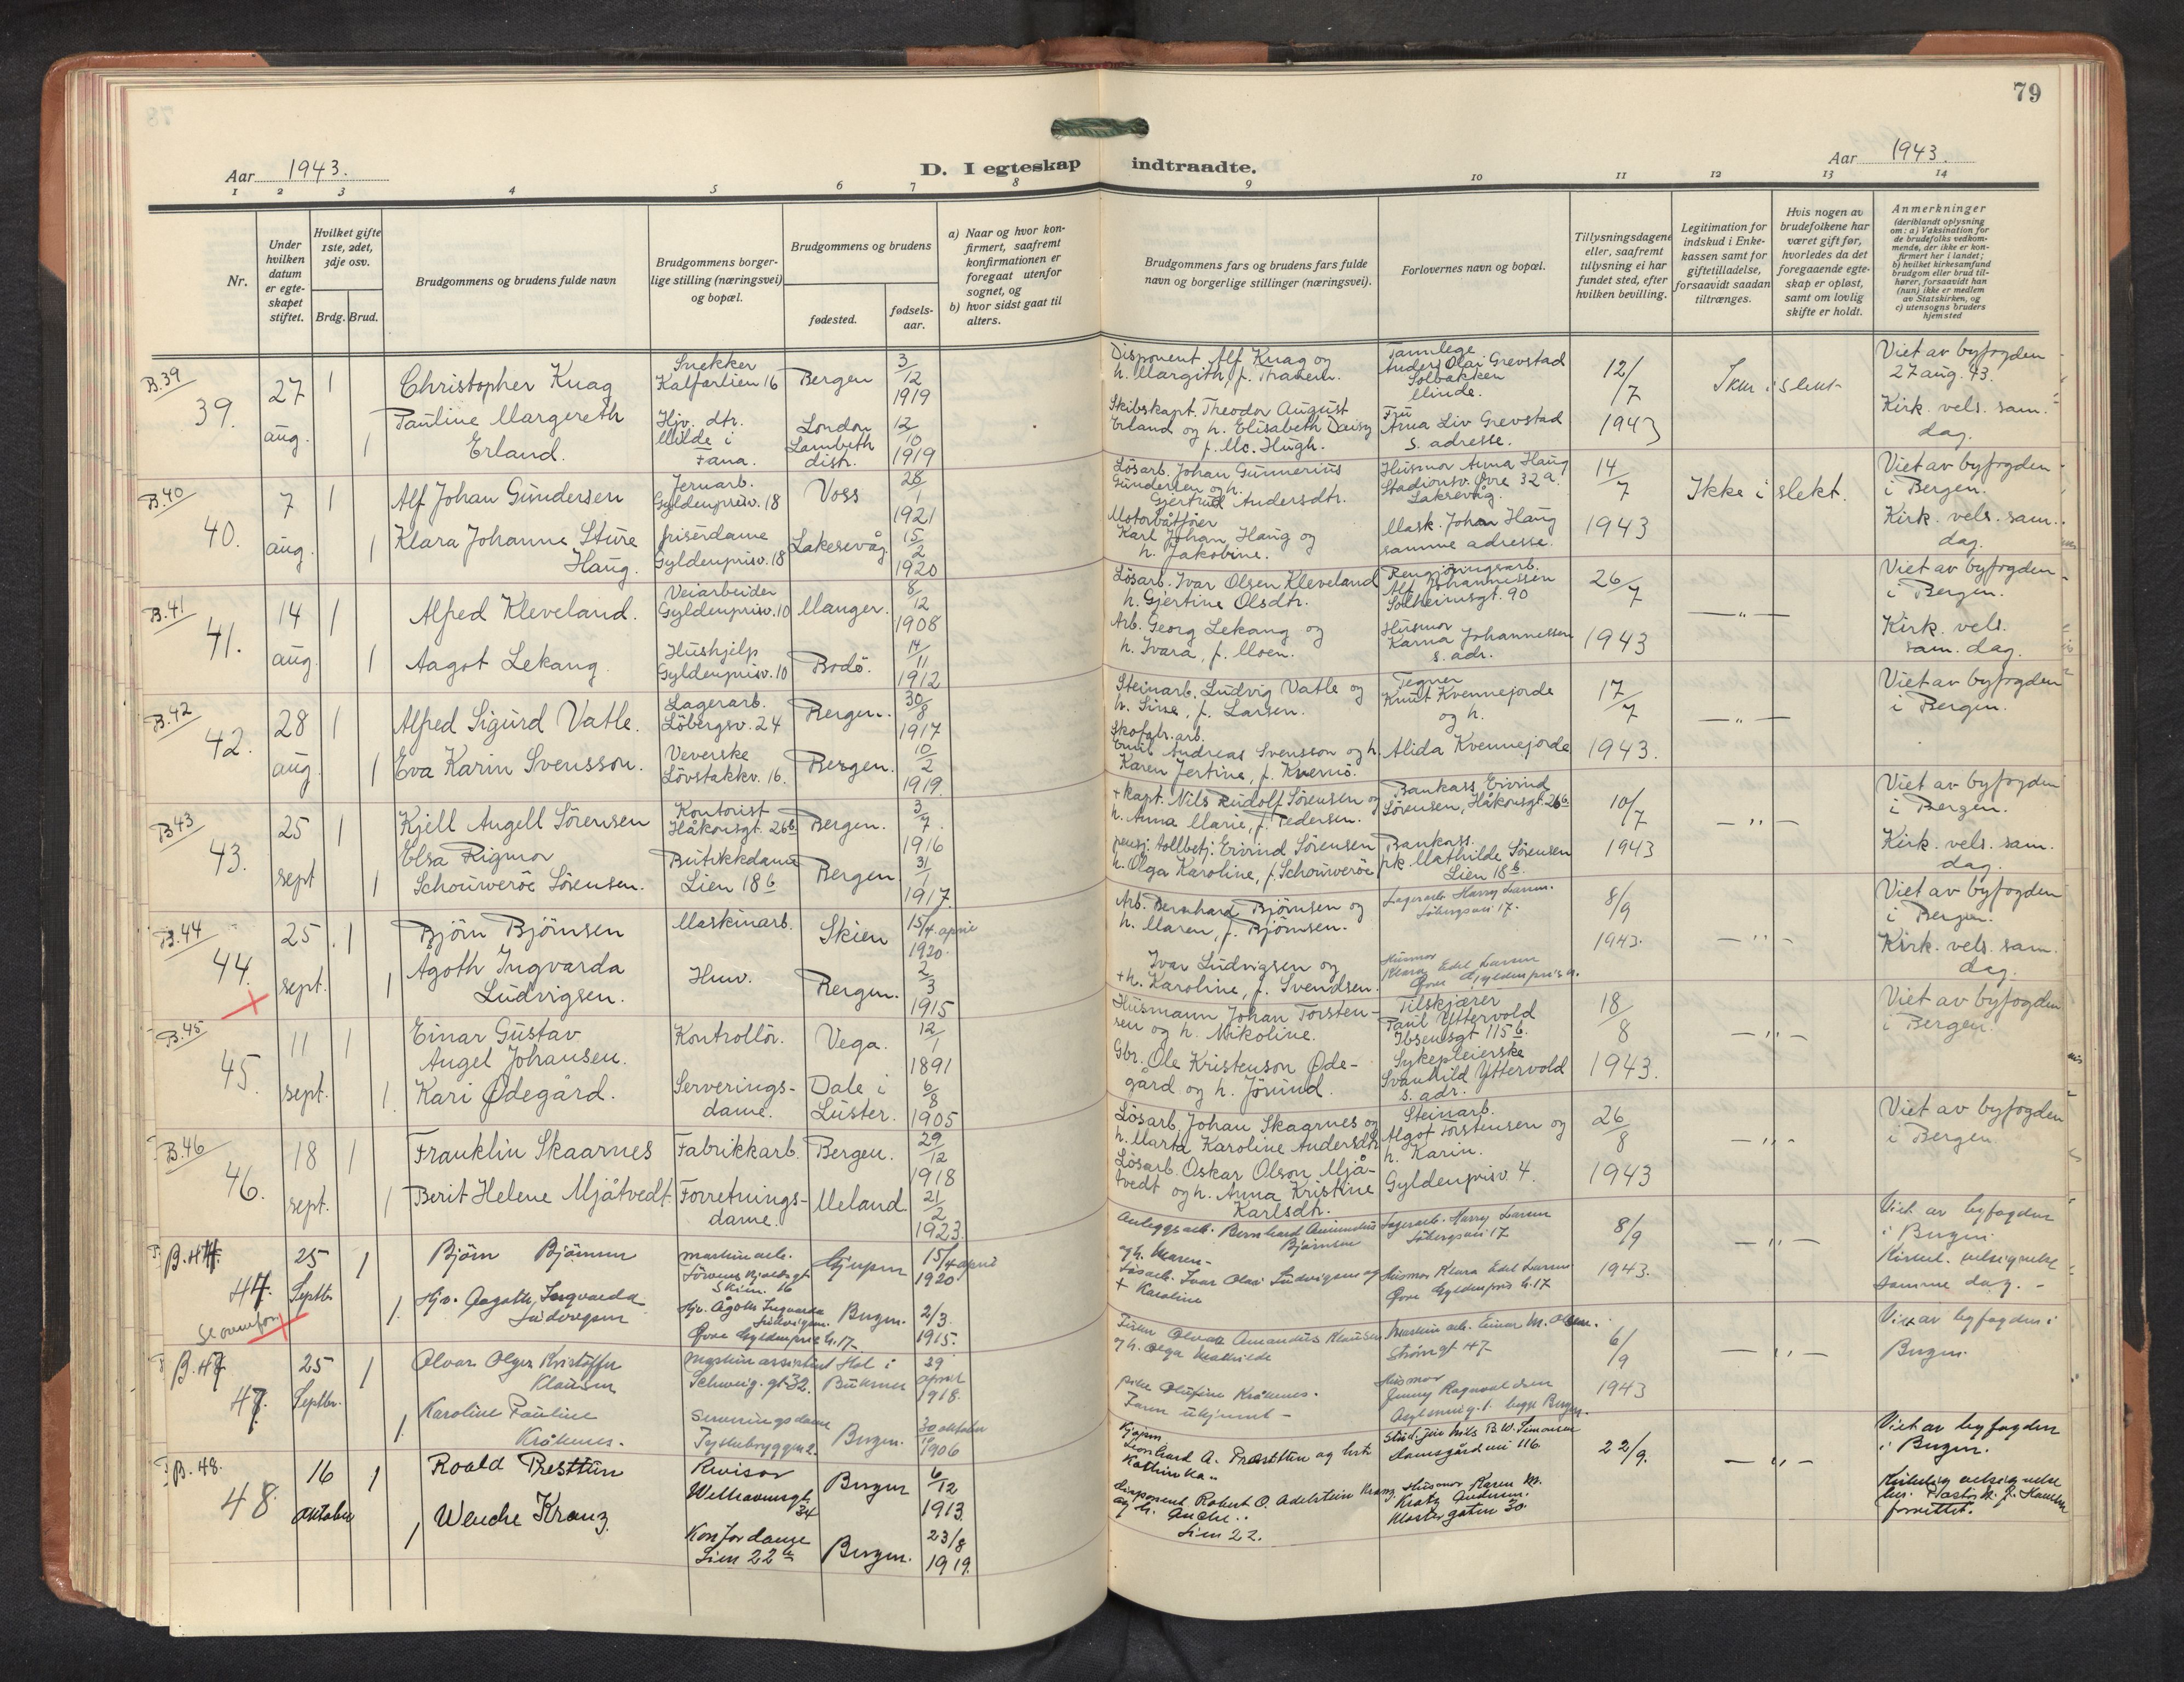 79
Aar 1943.
D. I egteskap indtraadte.
Aar 1943.
1 2 3 4 5 6 7 8 9 10 11 12 13 14
Nr.
Under hvilken datum er egteskapet stiftet.
Hvilket gifte 1ste, 2det, 3dje osv.
Brdg. Brud.
Brudgommens og brudens fulde navn
Brudgommens borgerlige stilling (næringsvei) og bopæl.
Brudgommens og brudens
fødested.
fødselsaar.
a) Naar og hvor konfirmert, saafremt konfirmationen er foregaat utenfor sognet, og
b) hvor sidst gaat til alters.
Brudgommens fars og brudens fars fulde navn og borgerlige stillinger (næringsvei).
Forlovernes navn og bopæl.
Tillysningsdagene eller, saafremt tillysning ei har fundet sted, efter hvilken bevilling.
Legitimation for indskud i Enkekassen samt for giftetilladelse, forsaavidt saadan tiltrænges.
Hvis nogen av brudefolkene har været gift før, hvorledes da det foregaaende egteskap er opløst, samt om lovlig skifte er holdt.
Anmerkninger
(deriblandt oplysning om: a) Vaksination for de brudefolks vedkommende, der ikke er konfirmert her i landet;
b) hvilket kirkesamfund brudgom eller brud tilhører, forsaavidt han (hun) ikke er medlem av Statskirken, og
c) utensogns bruders hjemsted
B.39
39.
27 aug.
1
Christopher Knag
Snekker
Kalfarlien 16
Bergen
3/12 1919
Disponent Alf Knag og
h. Margith, f.
Tannlege
Anders Olai Grevstad
Solbakken
Minde.
12/7 1943
i slekt
Viet av byfogden
27 aug. 43.
1
Pauline Margereth
Erland.
Hjv. dtr.
Milde i
Fana.
London
Lambeth
distr.
12/10 1919
Skibskapt. Theodor August
Erland og h. Elisabeth Daisy
f. Mc. Hugh.
Fru
Anna Liv Grevstad
s. adresse.
Kirk. vels. sam.
dag.
B.40
40.
7 aug.
1
Alf Johan Gundersen
Jernarb.
Gyldenprisv. 18
Voss
28/1 1921
Lösarb. Johan Gunnerius
Gundersen og h.
Gjertrud Andersdtr.
Husmor Anna Haug
Stadionsv. Øvre 32 a.
Laksevåg.
14/7 1943
Ikke i slekt.
Viet av byfogden
i Bergen.
1
Klara Johanne Sture
Haug.
frisérdame
Gyldenprisv. 18
Laksevåg
15/2 1920
Motorbåtfører
Karl Johan Haug og
h. Jakobine.
Mask. Johan Haug
samme adresse.
Kirk. vels. sam.
dag.
B.41
41.
14 aug.
1
Alfred Kleveland.
Veiarbeider
Gyldenprisv. 10
Manger.
8/12 1908
Lösarb. Ivar Olsen Kleveland
h. Gjertine Olsdtr.
Rengjöringsarb.
Alf Johannessen
Solheimsgt. 90
26/7 1943
— " —
Viet av byfogden
i Bergen.
1
Aagot Lekang.
Hushjelp
Gyldenprisv. 10
Bodö.
14/11 1912
Arb. Georg Lekang og
h. Ivara, f. Moen.
Husmor
Karna Johannessen
s. adr.
Kirk. vels.
sam. dag.
B.42
42.
28 aug.
1
Alfred Sigurd Vatle.
Lagerarb.
Löbergsv. 24
Bergen.
30/8 1917
Steinarb. Ludvig Vatle og
h. Sine, f. Larsen.
Tegner
Knut Kvennejorde
og h.
17/7 1943.
— " —
Viet av byfogden
i Bergen.
1
Eva Karin Svensson.
Veverske
Lövstakkv. 16.
Bergen.
10/2 1919.
Skofabr. arb.
Emil Andreas Svensson og h.
Karen Jertine, f.
Alida Kvennejorde
B.43
43.
25 sept
1
Kjell Angell Sörensen
Kontorist
Håkonsgt. 26b
Bergen.
3/7 1916
+ kapt. Nils Rudolf Sörensen og
h. Anna Marie, f. Pedersen.
Bankass. Eivind
Sörensen, Håkonsgt. 26b
10/7 1943
— " —
Viet av byfogden
i Bergen.
1
Elsa Rigmor
Schouweröe Sörensen.
Butikkdame
Lien 18b
Bergen
31/1 1917.
pensj. tollbetj. Eivind Sörensen
h. Olga Karoline, f. Schouweröe
Bankass.
frk Mathilde Sörensen
Lien 18b.
Kirk. vels. sam.
dag.
B.44
44.
25 sept.
1
Björn Björnsen
Maskinarb.
Skien
15/4. april 1920.
Arb. Bernhard Björnsen og
h. Maren, f. Björnsen.
Lagerarb. Harry Larsen.
Löbergsvei 17.
8/9 1943.
— " —
Viet av byfogden
i Bergen.
1
Agoth Ingvarda
Ludvigsen.
Husv.
Bergen.
2/3 1915
Ivar Ludvigsen og
+ h. Karoline, f. Svendsen.
Husmor
Klara Edel Larsen
Øvre Gyldenpris
Kirk. vels. sam.
dag.
B.45
45.
11 sept.
1
Einar Gustav
Angel Johansen.
Kontrollör.
Vega.
12/1 1891
Husmann Johan Torsten-
sen og h. Nikoline.
Tilskjærer
Paul Yttervold
Ibsensgt 115b.
18/8 1943.
— " —
Viet av byfogden
i Bergen.
1.
Kari Ødegård.
Serverings-
dame.
Dale i
Luster.
6/8 1905
Gbr. Ole Kristenson Øde-
gård og h. Jörund.
Sykepleierske
Svanhild Yttervold
s. adr.
B.46
46.
18 sept.
1
Franklin Skaarnes
Fabrikkarb.
Bergen.
29/12 1918
Lösarb. Johan Skagrnes og
h. Marta Karoline Andersdtr.
Steinarb.
Algot Torstensen og
h. Karin.
26/8 1943
— " —
Viet av byfogden
i Bergen
1
Berit Helene Mjåtvedt.
Forretnings-
dame.
Meland
21/2 1923.
Lösarb. Oskar Olson Mjå-
tvedt og h. Anna Kristine
Karlsdtr.
Gyldenprisv. 4.
B.44.
44.
Se ovenfor
25 Septbr.
1
Björn Björnsen
maskinarb.
Skien. 16
Gjerpen
15/4 april 1920
Anleggsarb. Bernhard Amundus
Bjørnsen
og h. Maren
Lagerarb. Harry Larsen
Löbergsvei 17
8/9 1943.
— " —
Viet av byfogden
i Bergen.
1.
Hjv. Aagoth Ingvarda
Ludvigsen
Hjv. Ågoth Ingvarda
Ludvigsen.
Øvre Gyldenpris h. 17
Bergen.
2/3. 1915.
Løsarb. Ivar Olai Ludvigsen og
+ Karoline
Husmor Klara Edel Larsen
Øvre Gyldenpris h. 17
Kirkel. velsignelse
samme dag. -
B.47
47.
25 Septbr.
1
Alvar Olger Kristoffer
Klausen
Maskinassistent
Schweig. gt 32.
Hol i
Buksnes
29 april 1918.
Fisker Oluan Amandus Klausen
og h. Olga Mathilde
Maskinarb. Einar M. Olsen.
Strömgt 47
6/9 1943
— " —
Viet av byfogden i
Bergen.
1.
Karoline Pauline
Kråkenes.
Serveringsdame
Tyskebryggen 2.
Bergen.
30 oktober 1906
pike Olufine Kråkenes.
Faren ukjennt -
Husmor
Jenny Ragnvaldsen
B.48.
48.
16 oktober
1
Roald Presttun
Revisor
Welhavensgt.
34
Bergen
6/12 1913.
Kjøpm
Leonhard A. Præsttun og hst.
Kathinka..
Stud. jur Nils B. W. Simonsen
Damsgårdvei 116
22/9.
— " —
Viet av byfogden
i Bergen.
1
Wenche Kranz
Kontordame
Lien 22b
Bergen.
23/8 1919.
Disponent Robert O. Adelstein Kranz.
og h.
Lien 22.
Husmor Karen M.
Klostergaten 30.
Kirkelig velsignelse
forrettet.